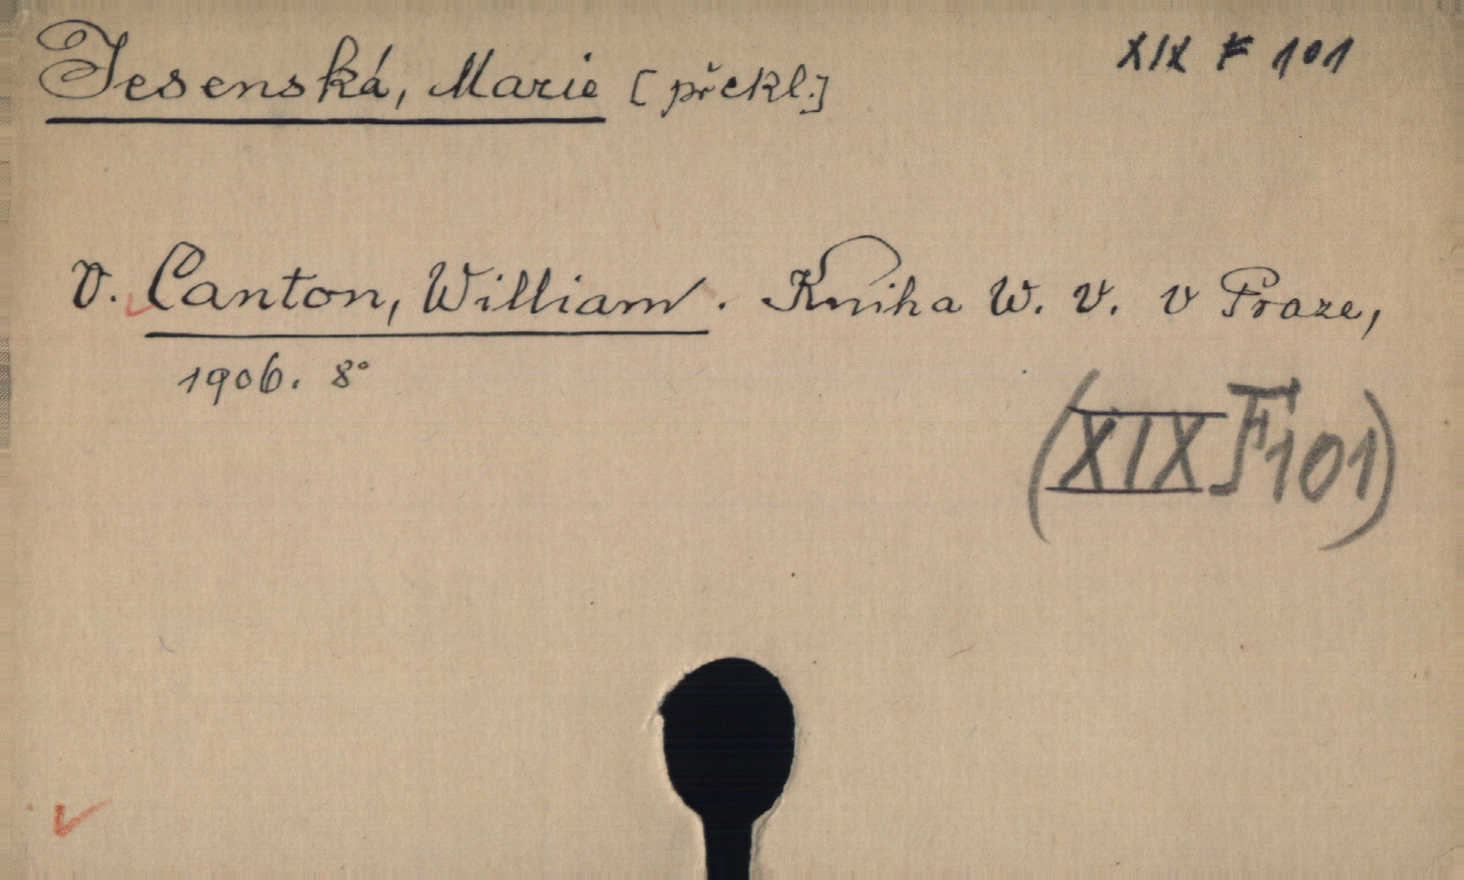 Jesenská, Marie [překl.]
XIX F 101
v. Canton, William. Kniha W. V. v Praze,
1906. 8°
(XIX F 101)